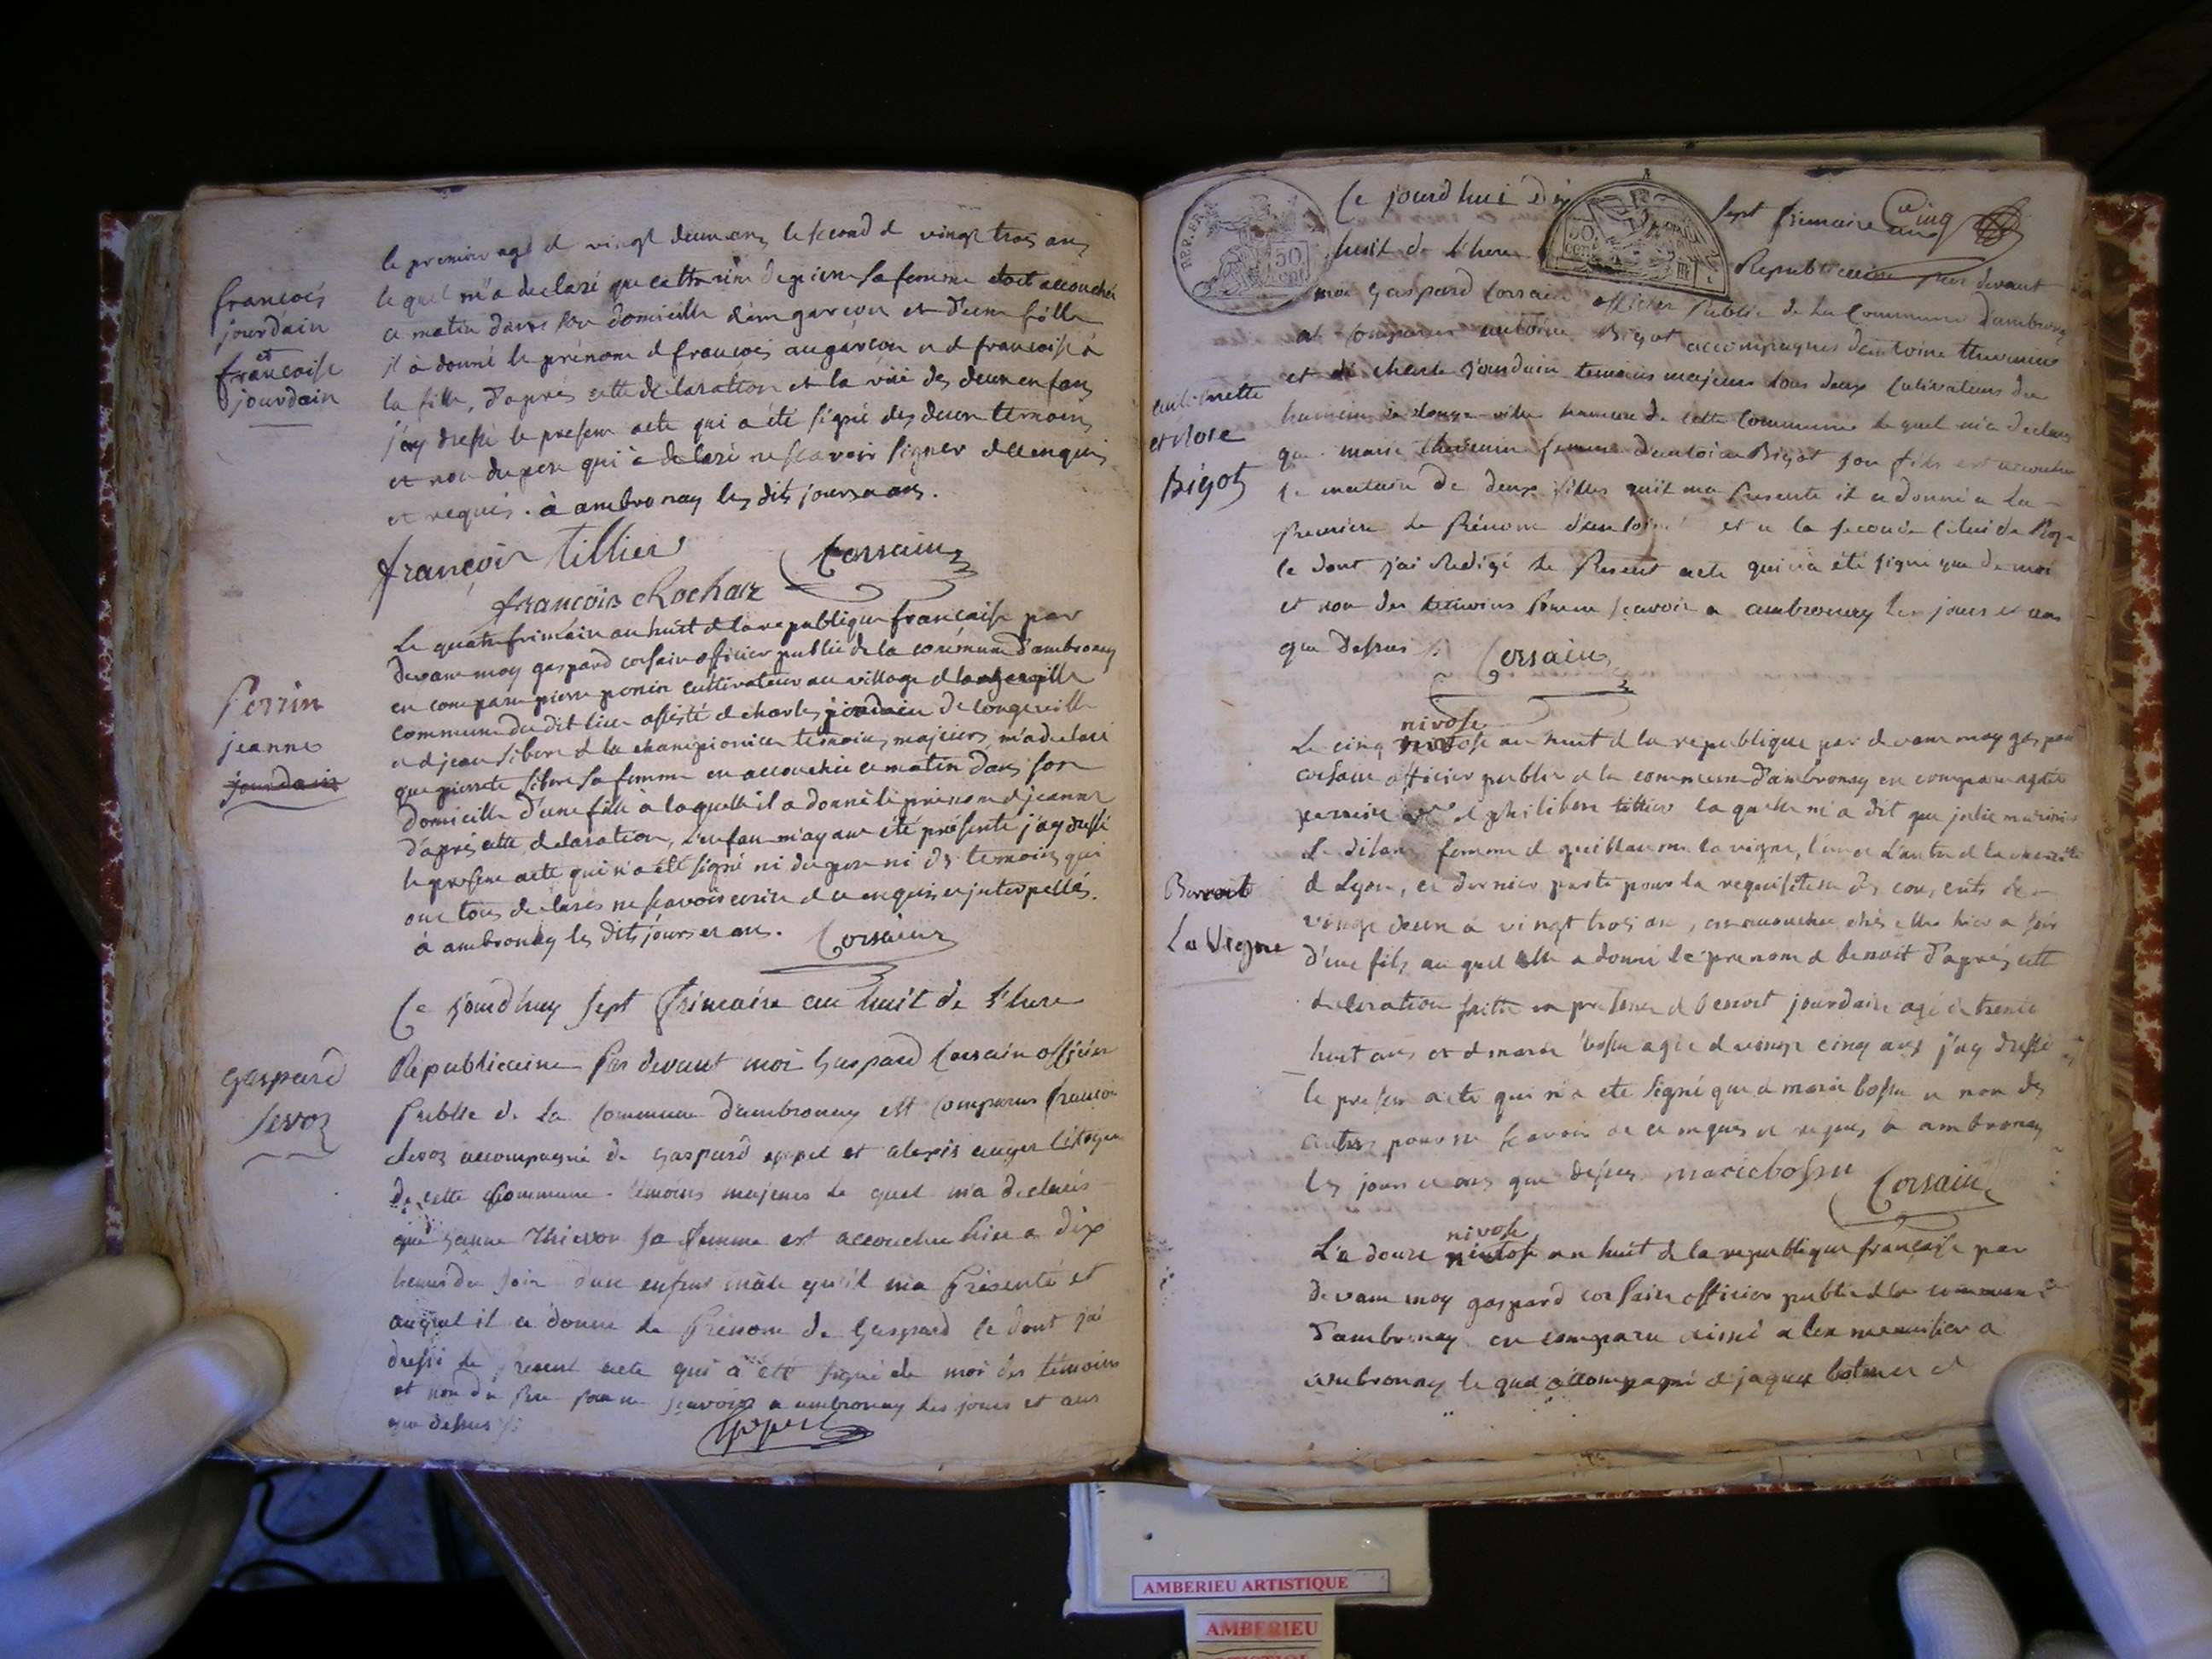 le premier agé d vingt deux ans le second d vingt trois ans
françois
jourdain
et
françoise
jourdain
le quel m'a declaré que catherine sa femme etoit accouchée
ce matin dans son domicille d'un garçon et d'une fille
il à donné le prénom d françois au garçon et d françoise à
la fille, d'aprés cette déclaration et la vüe des deux enfans
j'ay dressé le present acte qui a été signé des deux temoins
et non du pere qui à declaré ne scavoir signer de ce enquis
et requis. à ambronay les dits jours et ans.
françois tillier Corsain
françois Rochar
Perrin
jeanne
jourdain
Le quatre frimaire an huit d la republique française par
devant moy gaspard corsain officier public de la commune d'ambronay
en comparu pierre perrin cultivateur au village d longeville
commune du dit lieu assisté d charles jourdain de longeville
et d jean d la championiere temoins majeurs, m'a declaré
que pierrete sa femme en accouchée ce matin dans son
domicille d'une fille à laquelle il a donné le prénom d jeanne
d'aprés cette déclaration, l'enfant m'ayant été présenté j'ay dressé
le present acte qui n'a été signé ni du pere ni ds temoins qui
ont tous declarés ne scavoir ecrire d ce enquis et interpellés.
à ambronay les dits jours et ans. Corsain
gaspard
Ce jourd'huy sept frimaire an huit de L'here
Republicaine Par devant moi Gaspard Corsain officier
Public de la Commune d'ambronay est Comparus françoi
accompagné de Gaspard et alexis auger Citoyen
de cette Commune temoins majeurs le quel m'a declaré
que Janne sa femme est accouchee hier a dix
heures du soir d'un enfant mâle qu'il ma Présenté et
auquel il a donné le Prénom de Gaspard Ce dont j'ai
dressé le present acte qui a été signé de moi des témoins
et non du Pere pour ne scavoir a ambronay les jours et ans
que dessus
REP. FRA.
50
cent
50
cent
Ce jourd'hui dix sept frimaire an
huit de L'here Republicaine Par devant
moi Gaspard Corsain officier Public de la Commune d'ambronay
at comparus antoine Bigot accompagnés d'antoine thevenin
et de charle Jourdain temoins majeurs tous deux Cultivateurs du
antoinette
et Rose
Bigot
hameau de longeville hameau de cette Commune le quel m'a declaré
que marie thevenin femme d'antoine Bigot son fils est accouchee
le matain de deux filles qu'il ma Presenté il a donné a la
Premiere le Prénom et a la seconde Celui de Roze
Ce dont j'ai Redigé le Present acte qui n'a été signé que de moi
et non des temoins Pour ne scavoir a ambronay les jours et ans
que dessus Corsain
nivose
Le cinq an huit d la republique par devant moy gaspard
corsain officier public d la commune d'ambronay en comparu
d philibert tillier la quelle m'a dit que julie
femme d guillaume lavigne, l'un et l'autre d
d Lyon, ce dernier parti pour la requisition ds conscrits de
Benoit
La Vigne
vingt deux a vingt trois ans, en accouchée chés elle hier a soir
d'un fils au quel elle a donné le prenom d benoit d'aprés cette
declaration faitte en presence d benoit jourdain agé de trente
huit ans et d marie bossu agée d vingt cinq ans j'ay dressé
le present acte qui n'a eté signé que d marie bossu et non des
autres pour ne scavoir de ce enquis et requis à ambronay
les jours et ans que dessus. marie bossu Corsain
nivose
Le douze an huit d la republique française par
devant moy gaspard corsain officier public d la commune
d'ambronay en comparu menuisier a
ambronay le quel accompagné d jaques
AMBERIEU ARTISTIQUE
AMBERIEU